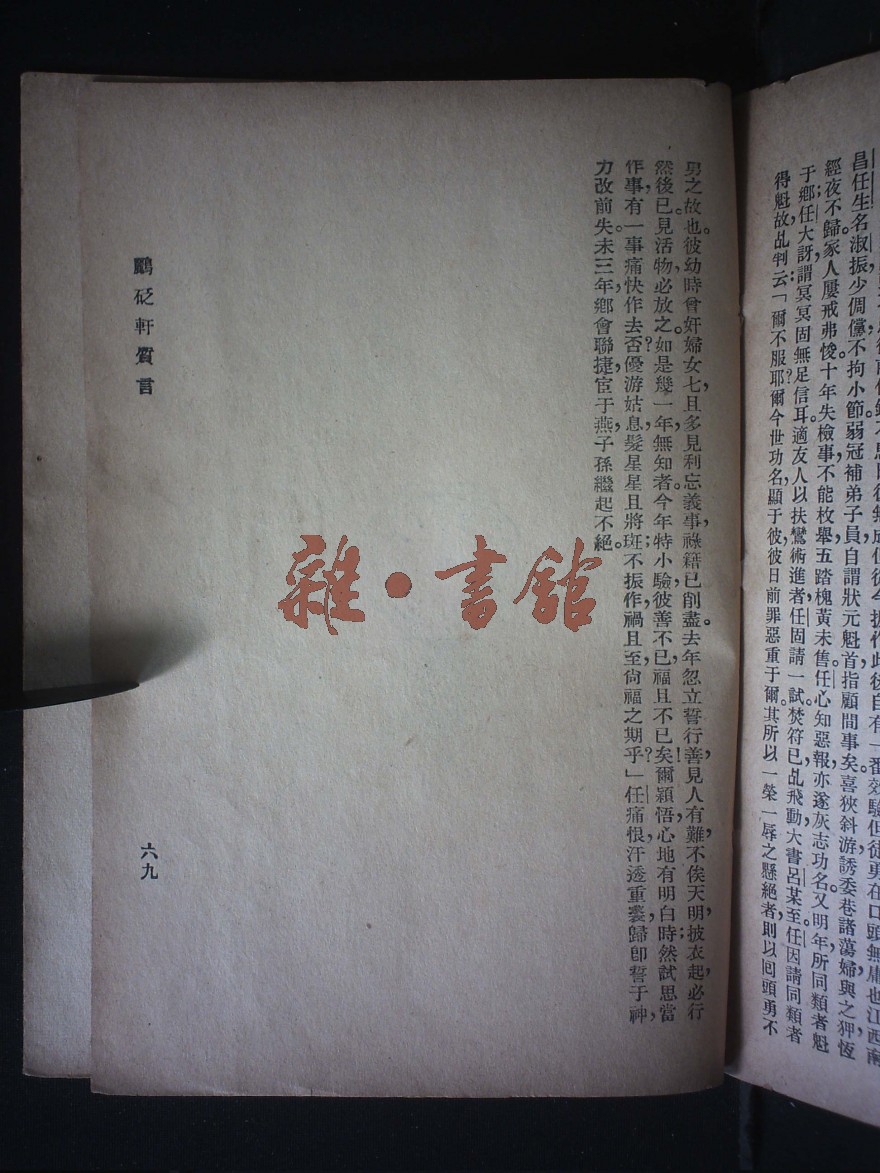 昌任生名淑振少倜儻不拘小節弱冠補弟子員自謂狀元魁首指顧間事矣喜狹斜游誘委巷諸蕩婦與之狎恆
經夜不歸家人屢戒弗悛十年失檢事不能枚舉五踏槐黃未售任心知惡報亦遂灰志功名又明年所同類者魁
于鄉任大訝謂冥冥固無足信耳適友人以扶鸞術進者任固請一試焚符已乩飛動大書呂某至任因請同類者
得魁故乩判云「爾不服耶爾今世功名顯于彼彼日前罪惡重于爾其所以一榮一辱之懸絕者則以囘頭勇不
勇之故也。彼幼時曾奸婦女七且多見利忘義事祿籍已削盡。去年忽立誓行善見人有難不俟天明披衣起必行
然後已見活物必放之。如是幾一年無知者今年特小驗彼善不已福且不已矣!爾穎悟心地有明白時然試思當
作事有一事痛快作去否?優游姑息髮星星且將斑不振作禍且至尙福之期乎?」任痛恨汗透重褻歸卽誓于神,
力改前失。未三年鄉會聯捷宦于燕子孫繼起不絕。
鸝砭軒質言
六九
雜·書館